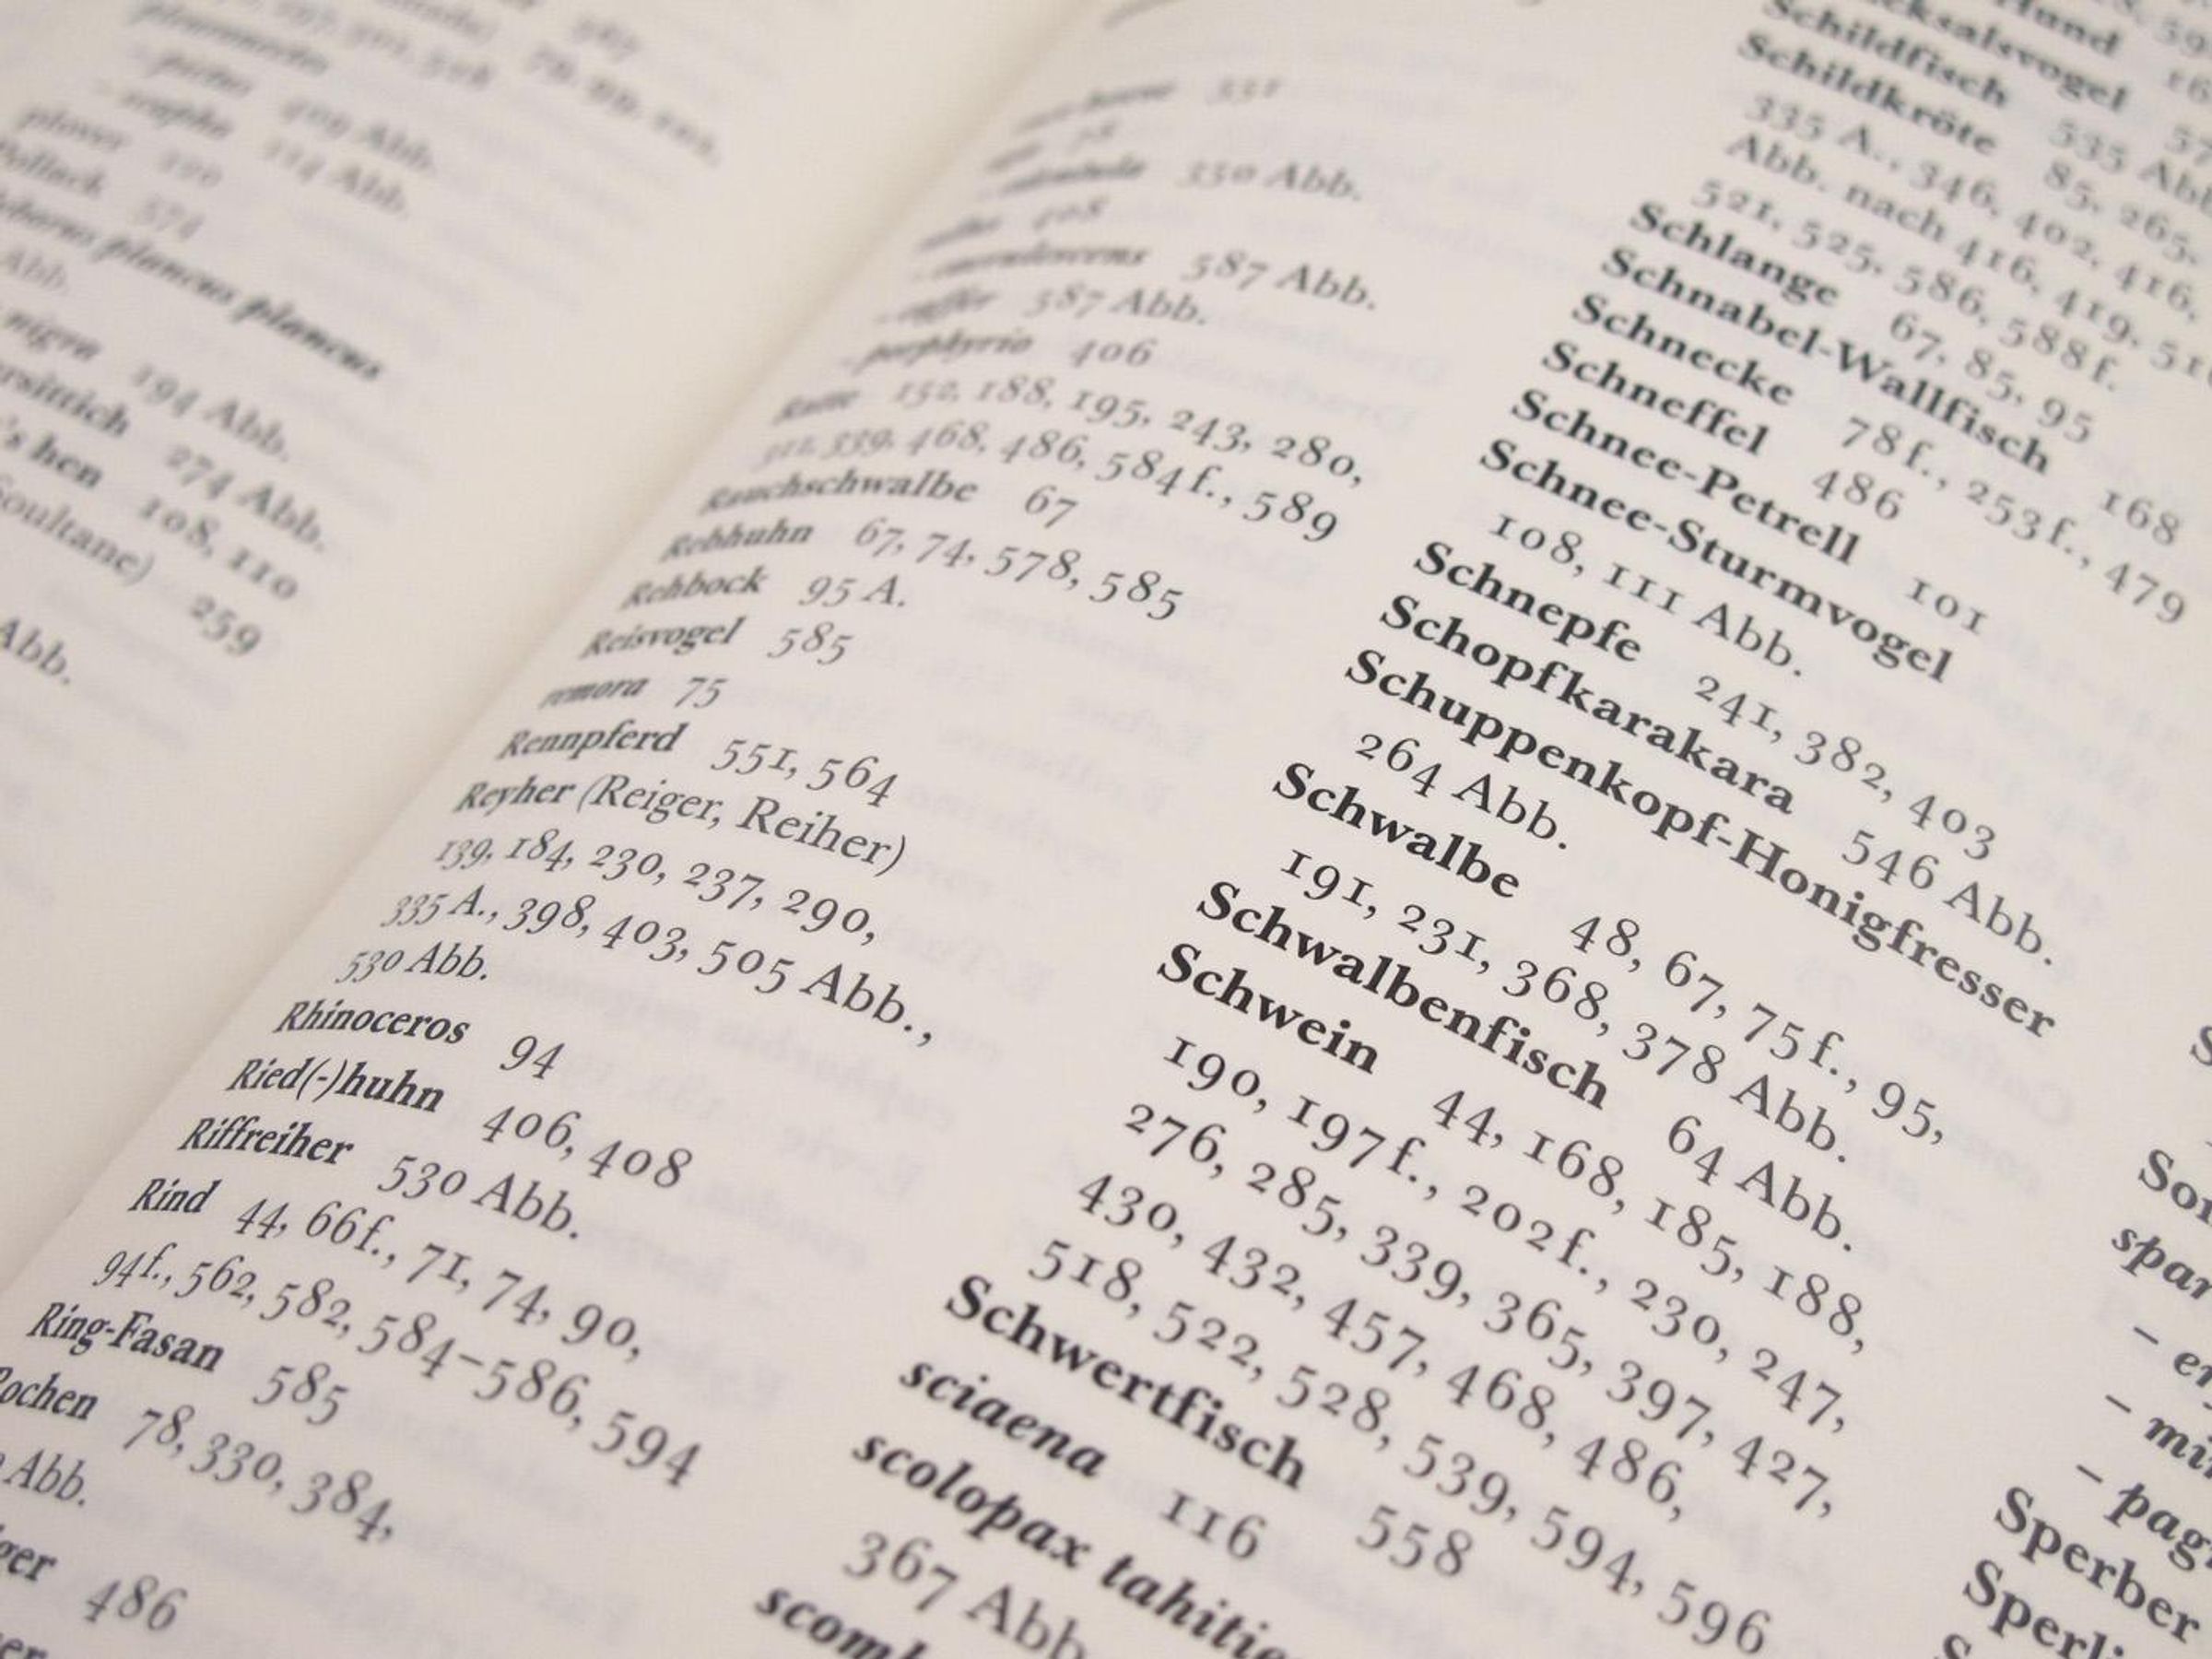 387
409 Abb.
114 Abb.
574
plancus plancus
Abb.
nigra 194 Abb.
274 Abb.
's hen 108, 110
Soultane) 259
Abb.
331
350 Abb.
408
587 Abb.
587 Abb.
porphyrio 406
Ratte 152, 188, 195, 243, 280,
339, 468, 486, 584f., 589
Rauchschwalbe 67
Rebhuhn 67, 74, 578, 585
Rehbock 95 A.
Reisvogel 585
remora 75
Rennpferd 551, 564
Reyher (Reiger, Reiher)
139, 184, 230, 237, 290,
335 A., 398, 403, 505 Abb.,
530 Abb.
Rhinoceros 94
Ried(-)huhn 406, 408
Riffreiher 530 Abb.
Rind 44, 66f., 71, 74, 90,
94f., 562, 582, 584–586, 594
Ring-Fasan 585
ochen 78, 330, 384,
Abb.
ger 486
er
Schildfisch 535 Abb
Schildkröte 85, 265,
335 A., 346, 402, 416,
Abb. nach 416, 419, 51
521, 525, 586, 588f.
Schlange 67, 85, 95
Schnabel-Wallfisch 168
Schnecke 78f., 253f., 479
Schneffel 486
Schnee-Petrell 101
Schnee-Sturmvogel
108, 111 Abb.
Schnepfe 241, 382, 403
Schopfkarakara 546 Abb.
Schuppenkopf-Honigfresser
264 Abb.
Schwalbe 48, 67, 75f., 95,
191, 231, 368, 378 Abb.
Schwalbenfisch 64 Abb.
Schwein 44, 168, 185, 188,
190, 197f., 202f., 230, 247,
276, 285, 339, 365, 397, 427,
430, 432, 457, 468, 486,
518, 522, 528, 539, 594, 596
Schwertfisch 558
sciaena 116
scolopax tahitie
367 Abb
scomb
S
Son
spar
– er
– mi
– pag
Sperber
Sperli
S